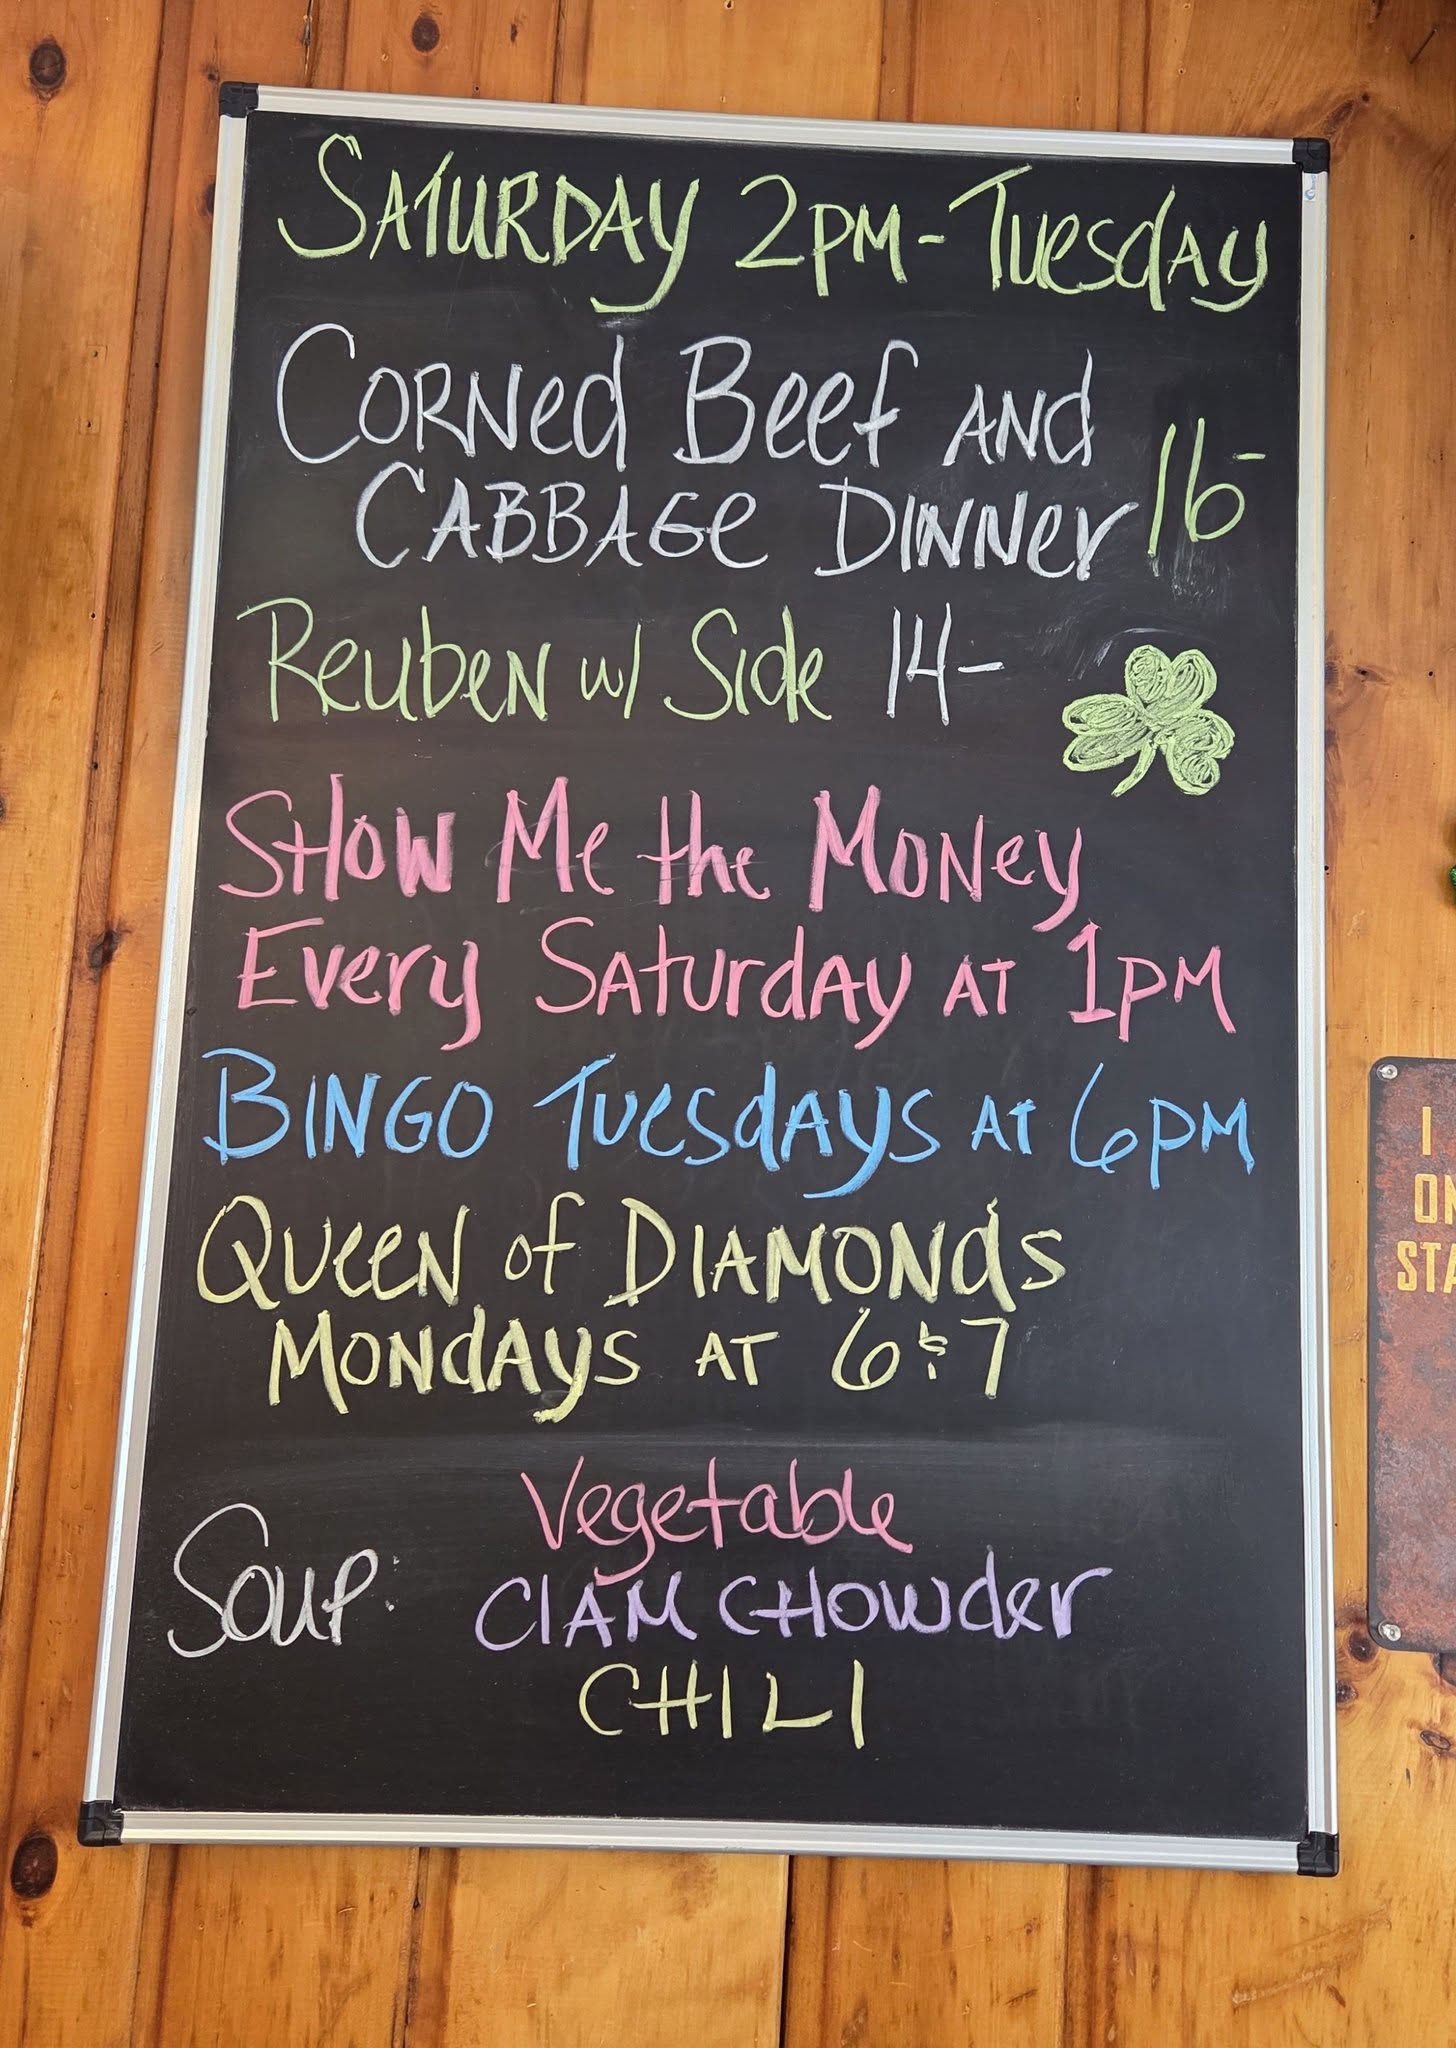 SATURDAY 2PM - TUESDAY
CORNED BEEF AND
CABBAGE DINNER 16-
REUBEN w/ SIDE 14-
SHOW ME THE MONEY
EVERY SATURDAY AT 1PM
BINGO TUESDAYS AT 6PM
QUEEN OF DIAMONDS
MONDAYS AT 6 & 7
Vegetable
SOUP: CLAM CHOWDER
CHILI
I
ON
STA